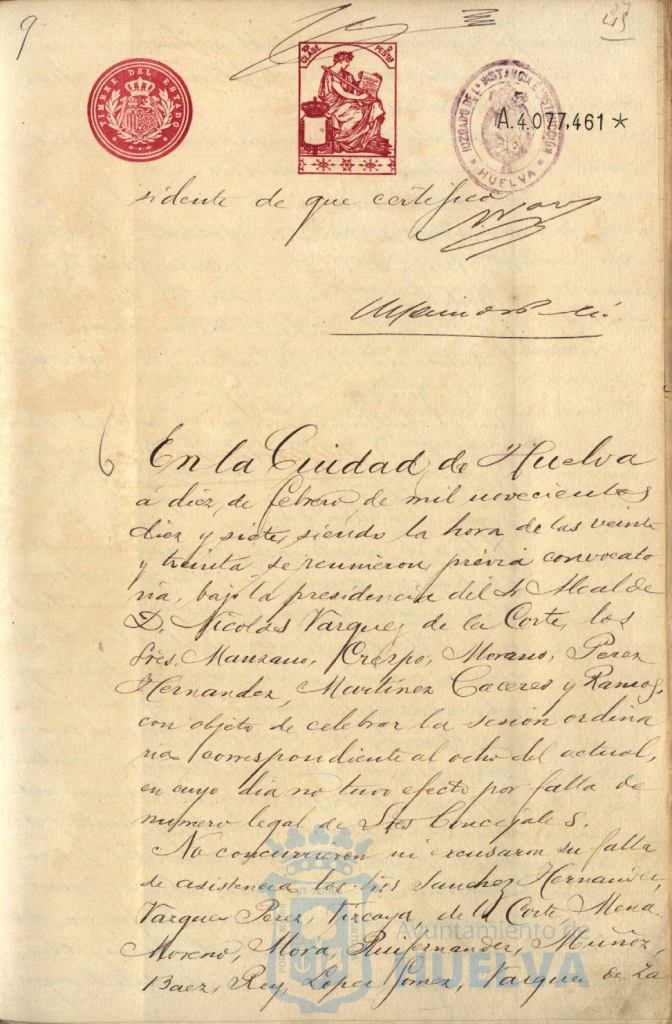 9
45
TIMBRE DEL ESTADO
10ª CLASE 2 PESETAS
JUZGADO DE 1ª INSTANCIA E INSTRUCCIÓN
HUELVA
A.4.077,461 *
sidente de que certifico
6
En la Ciudad de Huelva
á diez de febrero de mil novecientos
diez y siete, siendo la hora de las veinte
y treinta, se reunieron previa convocato
ria, bajo la presidencia del Sr Alcalde
D. Nicolas Vazquez de la Corte, los
Sres. Manzano, Crespo, Morano, Perez
Hernandez, Martinez Caceres y Ramos
con objeto de celebrar la sesión ordina
ria correspondiente al ocho del actual,
en cuyo dia no tuvo efecto por falta de
numero legal de Sres Concejales.
No concurrieron ni excusaron su falta
de asistencia los Sres Sanchez Hernandez,
Vazquez Perez, Vizcaya, de la Corte, Mena,
Moreno, Mora, Ruifernandez, Muñoz,
Baez, Rey, Lopez Gomez, Vazquez de Za
Ayuntamiento de
HUELVA